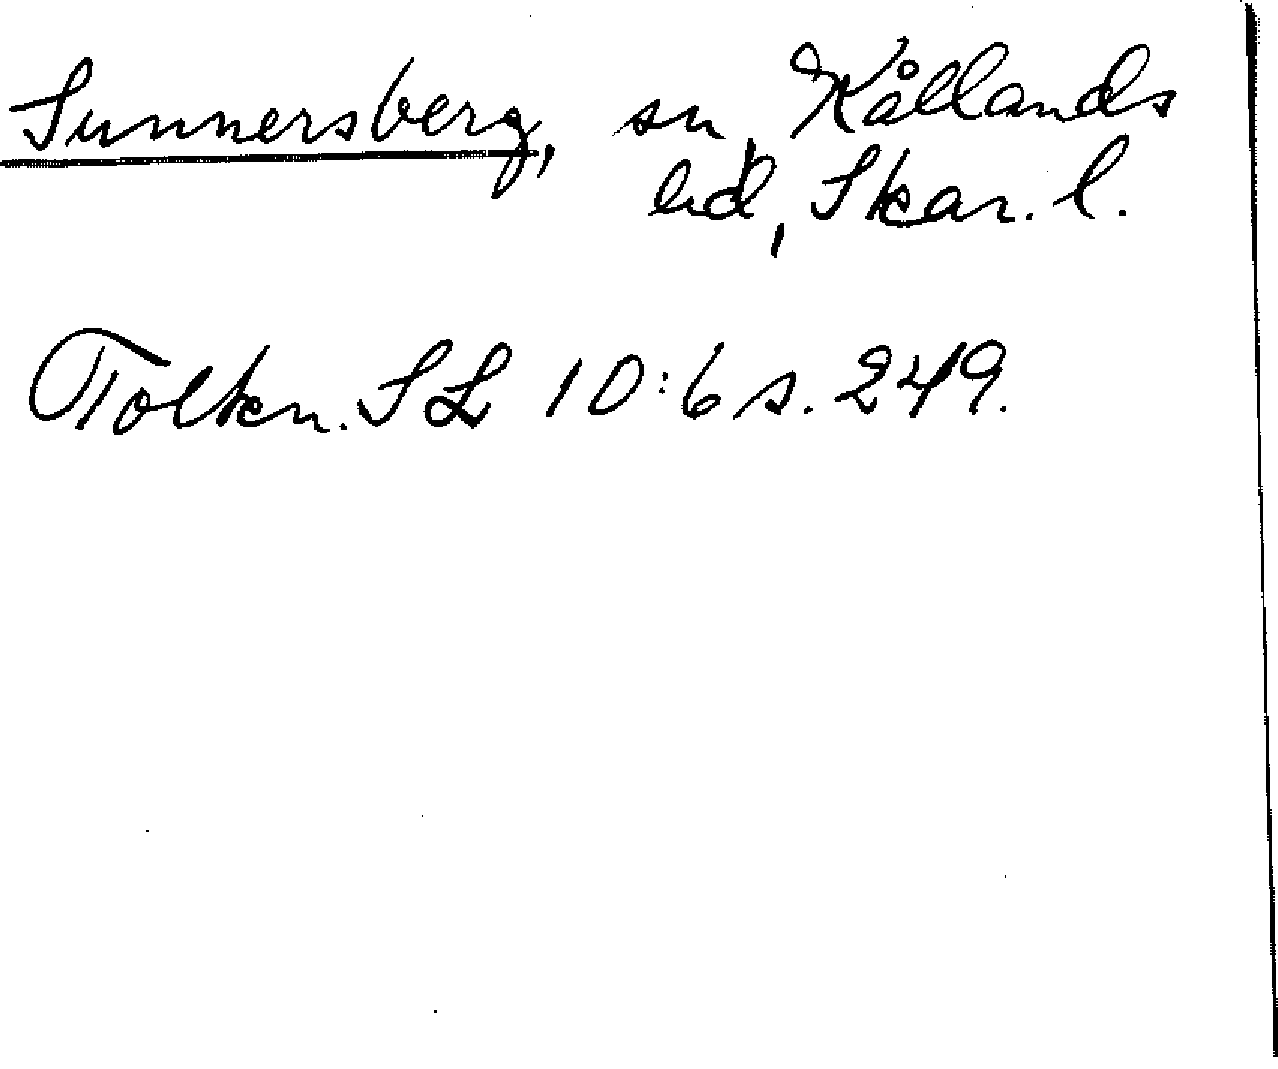 Sunnersberg, sn, Kållands
hd, Skar. l.
Tolkn. SL 10:6 s. 249.